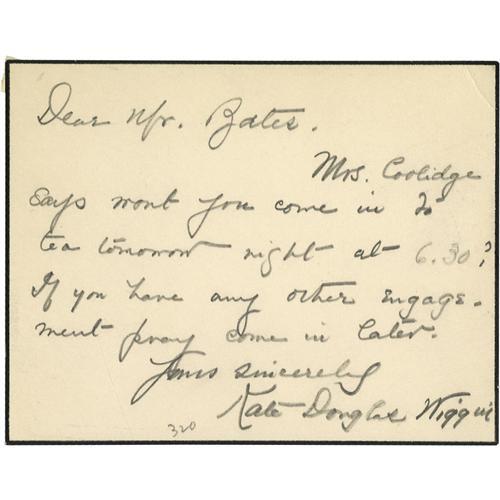 Dear Mr. Bates.
Mrs. Coolidge
says wont you come in to
tea tomorrow night at 6.30?
If you have any other engage-
ment pray come in later.
Yours sincerely
Kate Douglas Wiggin
320